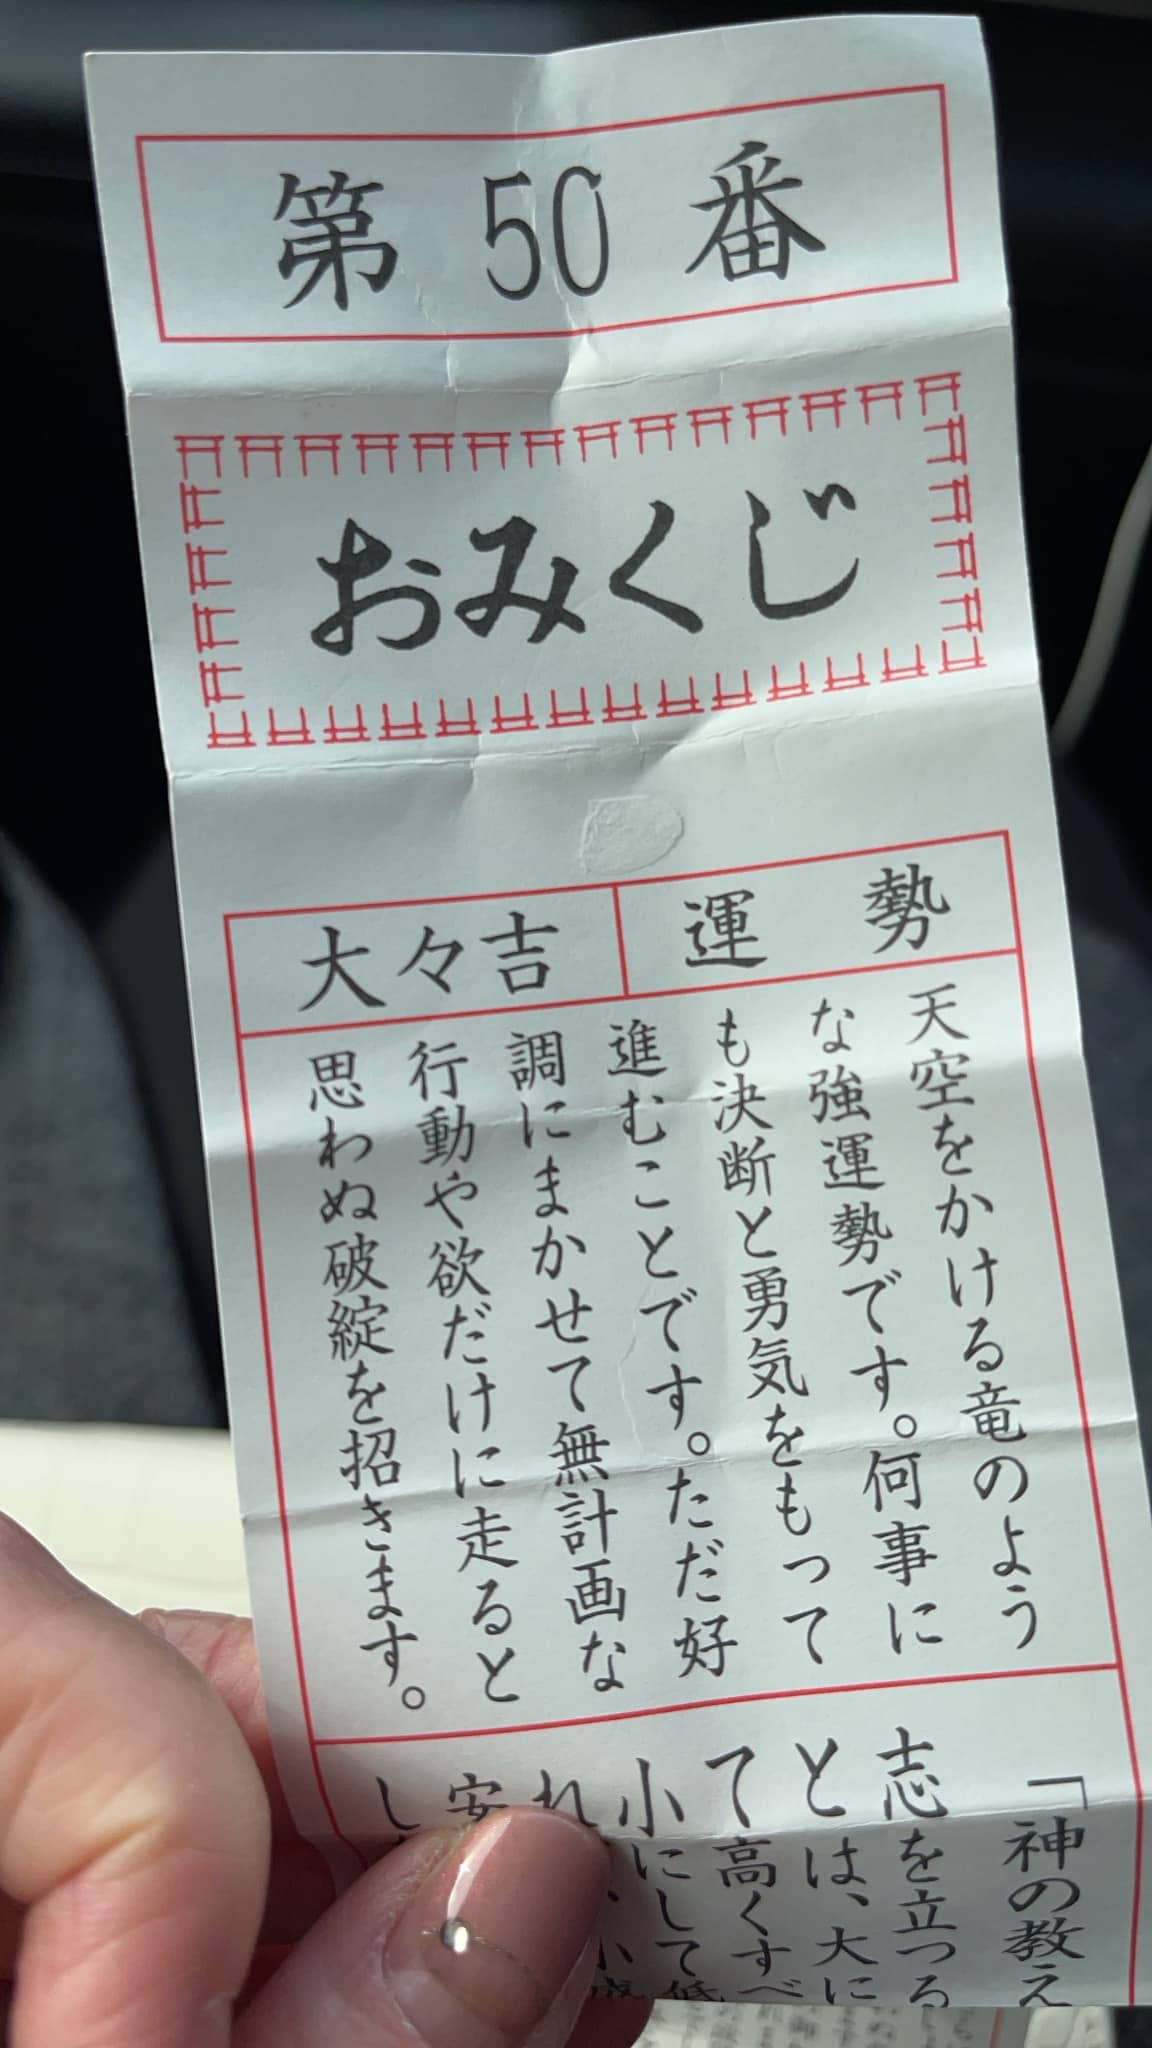 第50番
おみくじ
運勢
大々吉
天空をかける竜のよう
な強運勢です。何事に
も決断と勇気をもって
進むことです。ただ好
調にまかせて無計画な
行動や欲だけに走ると
思わぬ破綻を招きます。
「神の教え
志を立つる
とは、大に
て高くすべ
小にして低
れ
安
し